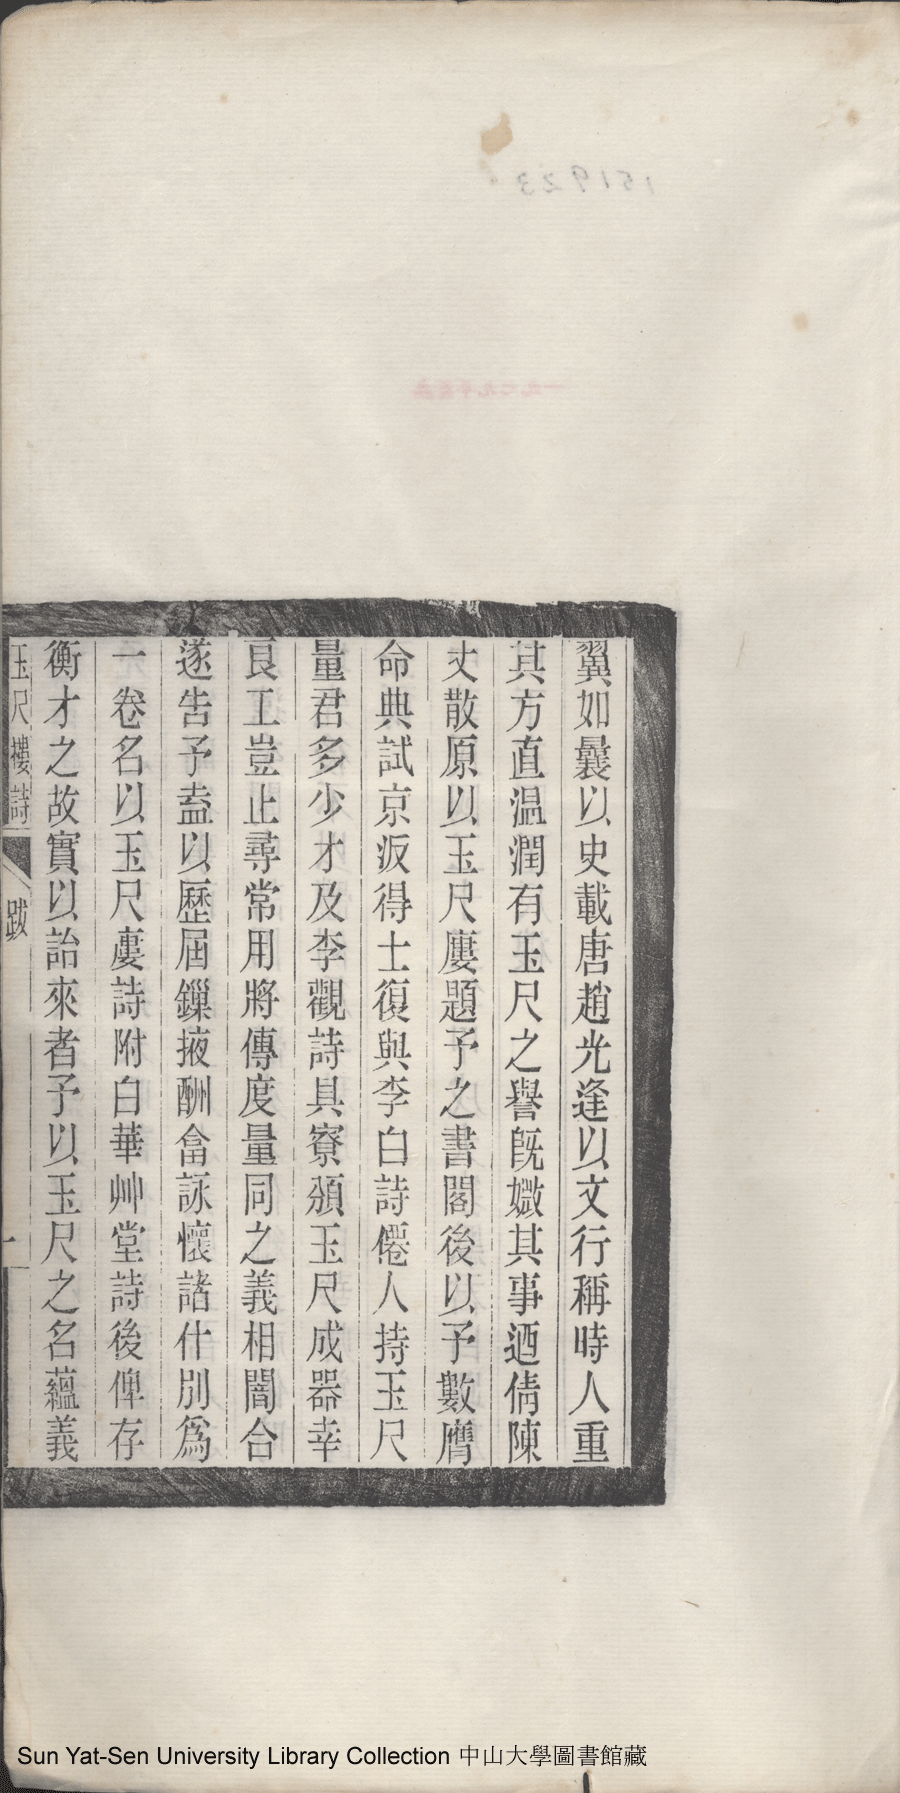 翼如曩以史載唐趙光逢以文行稱時人重
其方直温潤有玉尺之譽旣媺其事迺倩陳
丈散原以玉尺廔題予之書閣後以予數膺
命典試京沠得士復與李白詩僊人持玉尺
量君多少才及李觀詩具寮頒玉尺成器幸
良工豈止尋常用將傳度量同之義相闇合
遂告予盍以歷屆鏁掖酬畣詠懷諸什別爲
一卷名以玉尺廔詩附白華艸堂詩後俾存
衡才之故實以詒來者予以玉尺之名蘊義
玉尺樓詩 跋 一
151923
Sun Yat-Sen University Library Collection 中山大學圖書館藏